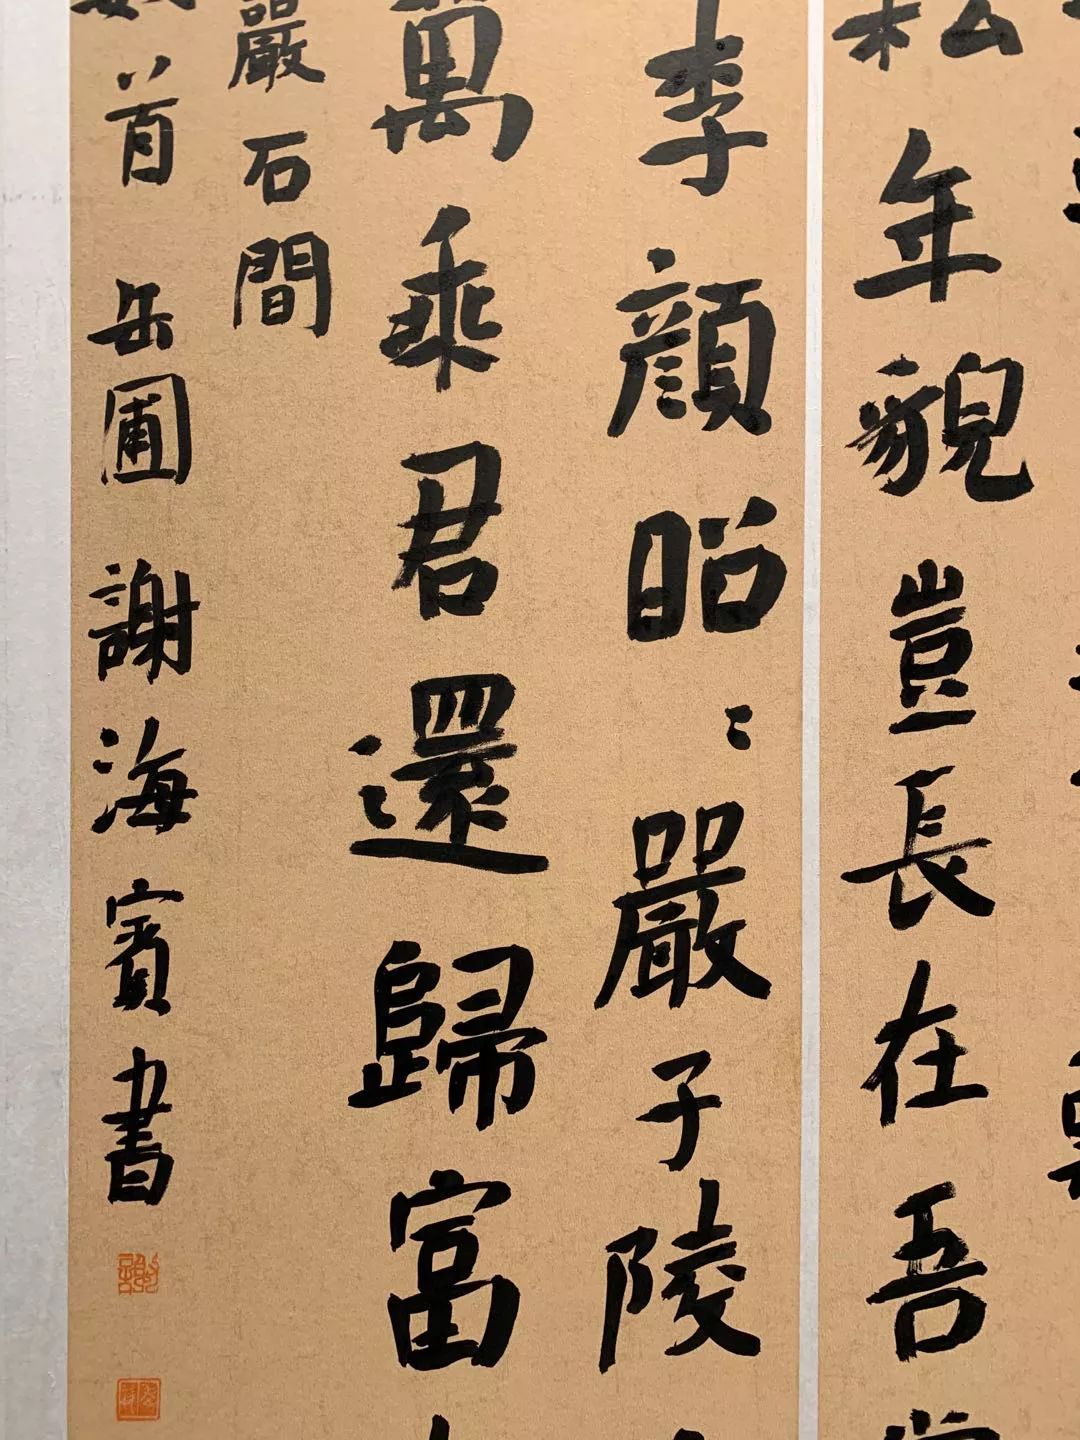 松年貌豈長在吾
李顔昭〻嚴子陵
萬乘君還歸富
嚴石間
首岳圃謝海賓書